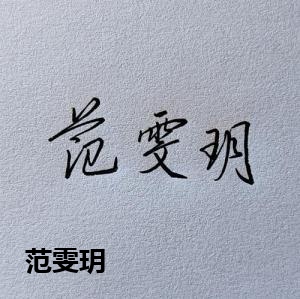 范雯玥
范雯玥